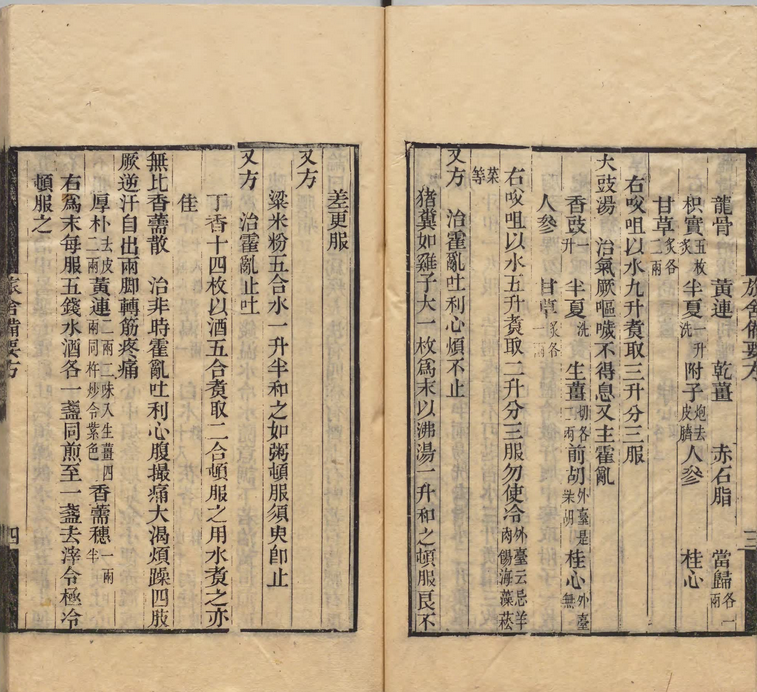 龍骨 黃連 乾薑 赤石脂 當歸各一兩
枳實五枚炙 半夏一升洗 附子炮去皮臍 人參 桂心
甘草炙各二兩
右㕮咀以水九升煑取三升分三服
大豉湯 治氣厥嘔噦不得息又主霍亂
香豉一升 半夏洗 生薑切各二兩 前胡外臺是柴胡 桂心外臺無
人參 甘草炙各一兩
右㕮咀以水五升煑取二升分三服勿使冷外臺云忌羊肉餳海藻菘
菜等
又方 治霍亂吐利心煩不止
猪糞如雞子大一枚爲末以沸湯一升和之頓服良不
旅舍備要方
三
差更服
又方
粱米粉五合水一升半和之如粥頓服須臾卽止
又方 治霍亂止吐
丁香十四枚以酒五合煑取二合頓服之用水煑之亦
佳
無比香薷散 治非時霍亂吐利心腹撮痛大渴煩躁四肢
厥逆汗自出兩脚轉筋疼痛
厚朴去皮二兩 黃連二兩二味入生薑四兩同杵炒令紫色 香薷穗一兩半
右爲末每服五錢水酒各一盞同煎至一盞去滓令極冷
頓服之
旅舍備要方
四